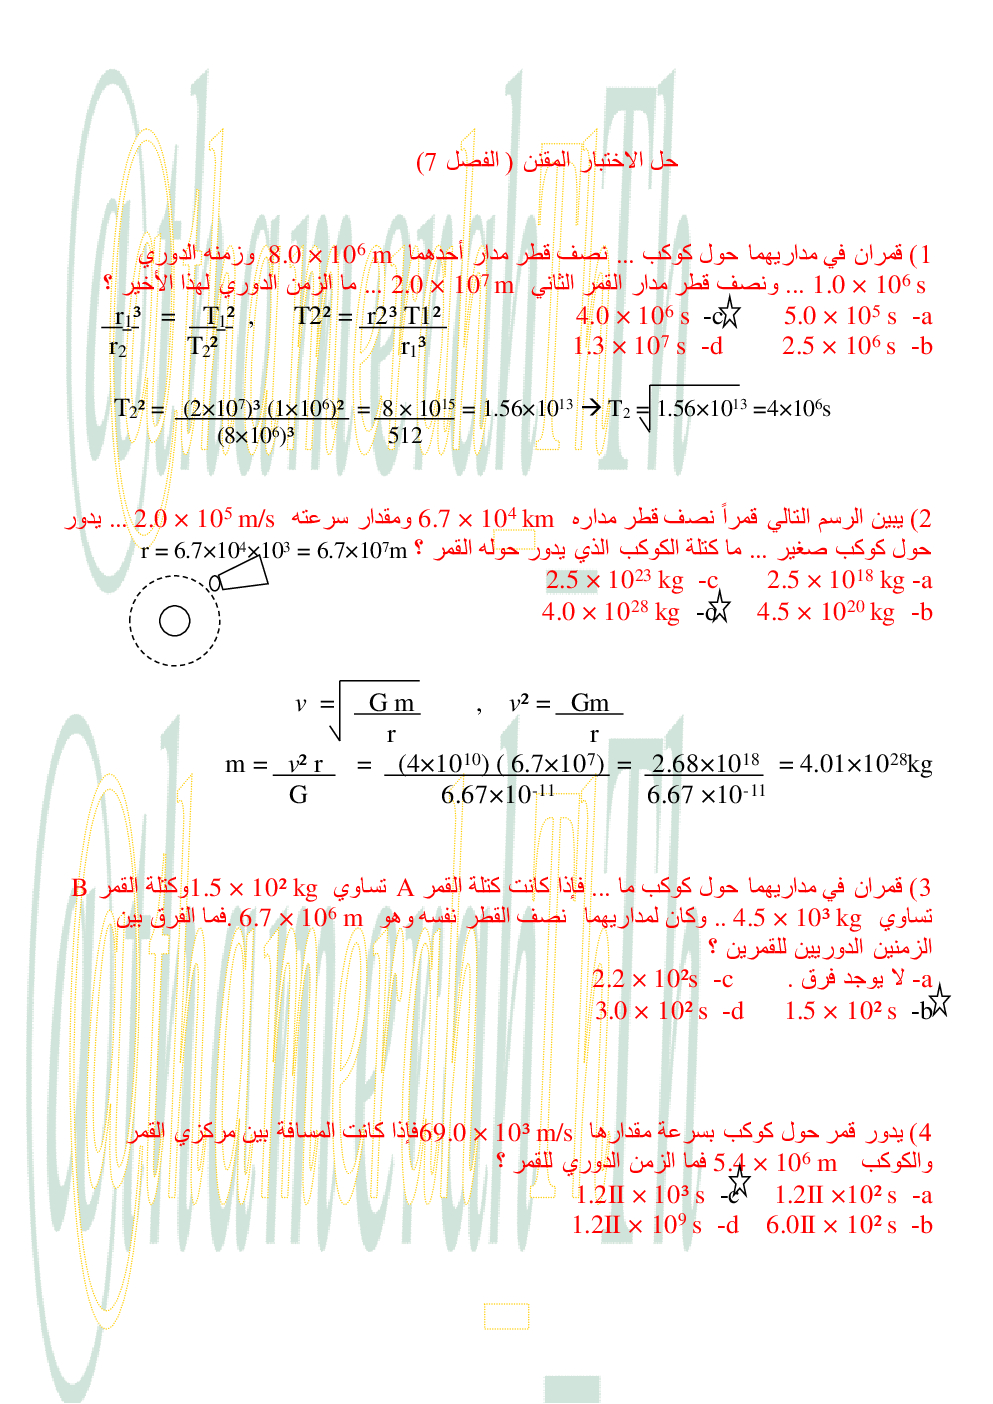 حل الاختبار المقنن ( الفصل 7)
1) قمران في مداريهما حول كوكب ... نصف قطر مدار أحدهما 8.0 × 10⁶ m وزمنه الدوري
1.0 × 10⁶ s ... ونصف قطر مدار القمر الثاني 2.0 × 10⁷ m ... ما الزمن الدوري لهذا الأخير ؟
a- 5.0 × 10⁵ s c- 4.0 × 10⁶ s
b- 2.5 × 10⁶ s d- 1.3 × 10⁷ s
r₁³ = T₁² , T2² = r2³ T1²
r₂ T₂² r₁³
T₂² = (2×10⁷)³ (1×10⁶)² = 8 × 10¹⁵ = 1.56×10¹³ → T₂ = √1.56×10¹³ =4×10⁶s
(8×10⁶)³ 512
2) يبين الرسم التالي قمراً نصف قطر مداره 6.7 × 10⁴ km ومقدار سرعته 2.0 × 10⁵ m/s ... يدور
حول كوكب صغير ... ما كتلة الكوكب الذي يدور حوله القمر ؟ r = 6.7×10⁴×10³ = 6.7×10⁷m
a- 2.5 × 10¹⁸ kg c- 2.5 × 10²³ kg
b- 4.5 × 10²⁰ kg d- 4.0 × 10²⁸ kg
v = √ G m , v² = Gm
r r
m = v² r = (4×10¹⁰) ( 6.7×10⁷) = 2.68×10¹⁸ = 4.01×10²⁸kg
G 6.67×10⁻¹¹ 6.67 ×10⁻¹¹
3) قمران في مداريهما حول كوكب ما ... فإذا كانت كتلة القمر A تساوي 1.5 × 10² kg وكتلة القمر B
تساوي 4.5 × 10³ kg .. وكان لمداريهما نصف القطر نفسه وهو 6.7 × 10⁶ m .فما الفرق بين
الزمنين الدوريين للقمرين ؟
a- لا يوجد فرق . c- 2.2 × 10²s
b- 1.5 × 10² s d- 3.0 × 10² s
4) يدور قمر حول كوكب بسرعة مقدارها 69.0 × 10³ m/s فإذا كانت المسافة بين مركزي القمر
والكوكب 5.4 × 10⁶ m فما الزمن الدوري للقمر ؟
a- 1.2II ×10² s c- 1.2II × 10³ s
b- 6.0II × 10² s d- 1.2II × 10⁹ s
@thamerah_Th
@thamerah_Th